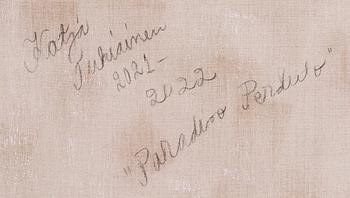 Katja
Tukiainen
2021-
2022
"Paradiso Perduto"